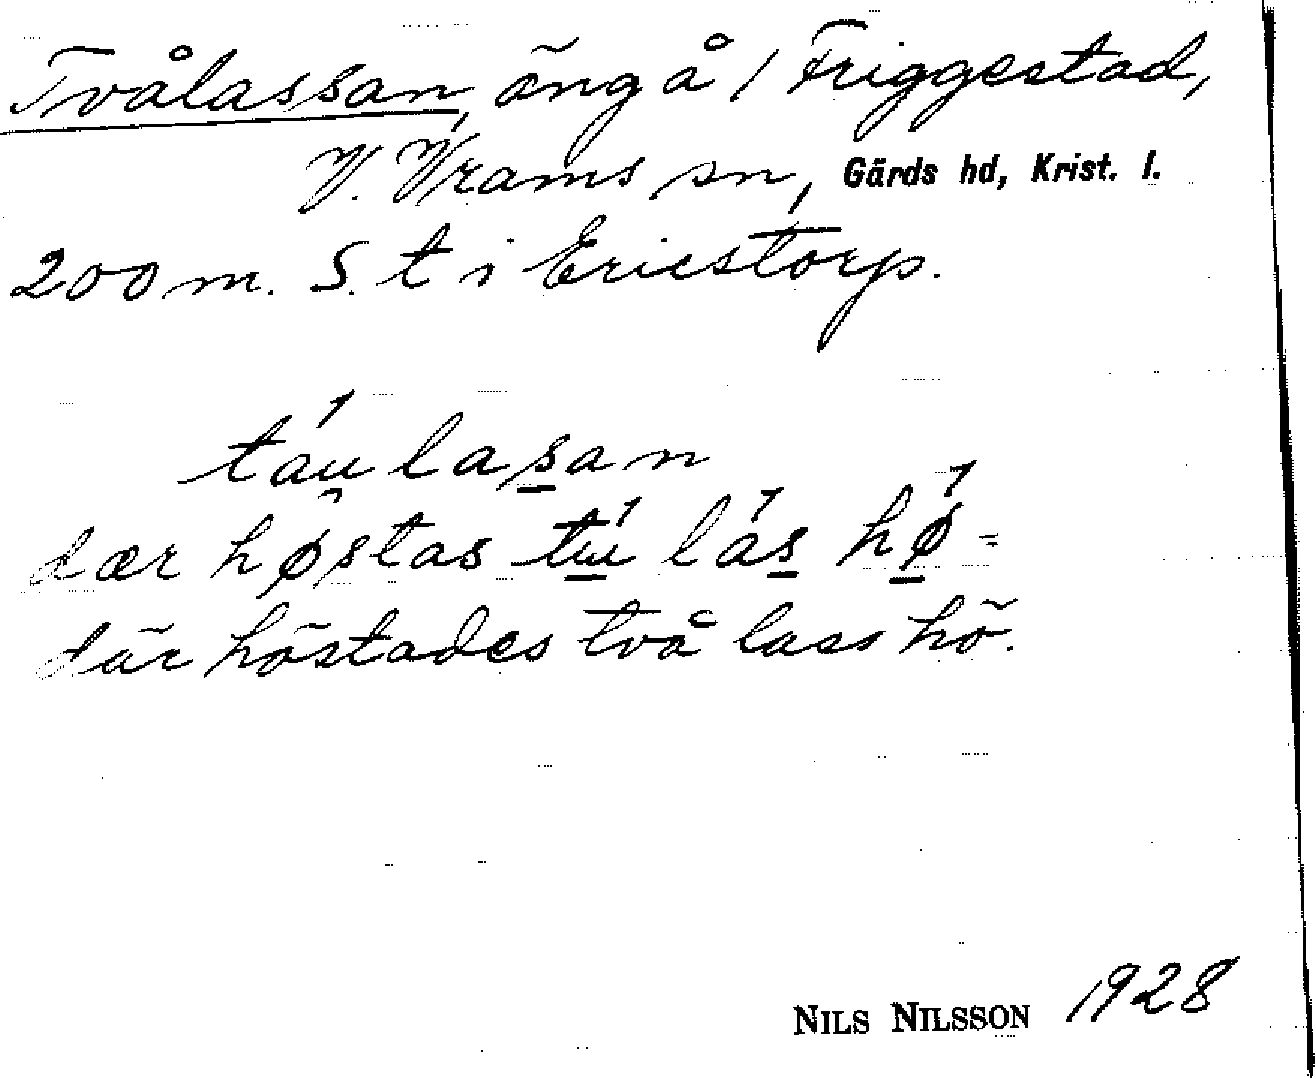 Tvålassan, äng å 1 Friggestad,
V. Vrams sn, Gärds hd, Krist. l.
200 m. S. t i Ericstorp.
táu lasan
dær høstas tú lás hǿ =
där höstades två lass hö.
NILS NILSSON 1928